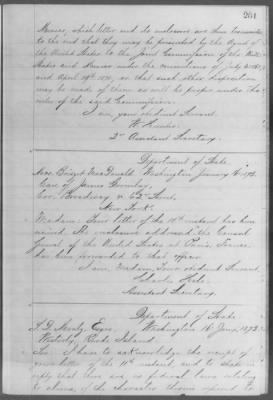 261
Mexico, which letter and its enclosures are thus transmitted
to the end that they may be presented by the Agent of
the United States to the Joint Commission of the United
States and Mexico under the conventions of July 4, 1868,
and April 19, 1871, or that such other disposition
may be made of them as will be proper under the
rules of the said Commission.
I am, your obedient Servant,
W. Hunter
2nd Assistant Secretary.
Department of State,
Washington January 16 1873.
Care of James Gormley,
Cor. Broadway &
New York.
Madam: Your letter of the 11th instant has been
received. Its enclosure addressed the Consul
General of the United States at Paris, France,
has been forwarded to that officer.
I am, Madam, Your obedient Servant,
Charles Hale,
Assistant Secretary.
Department of State,
Washington 16 Jany. 1873.
Westerly, Rhode Island.
Sir: I have to acknowledge the receipt of
your letter of the 11th instant, and to state in
reply that there are no federal laws relating
to aliens, of the character therein referred to